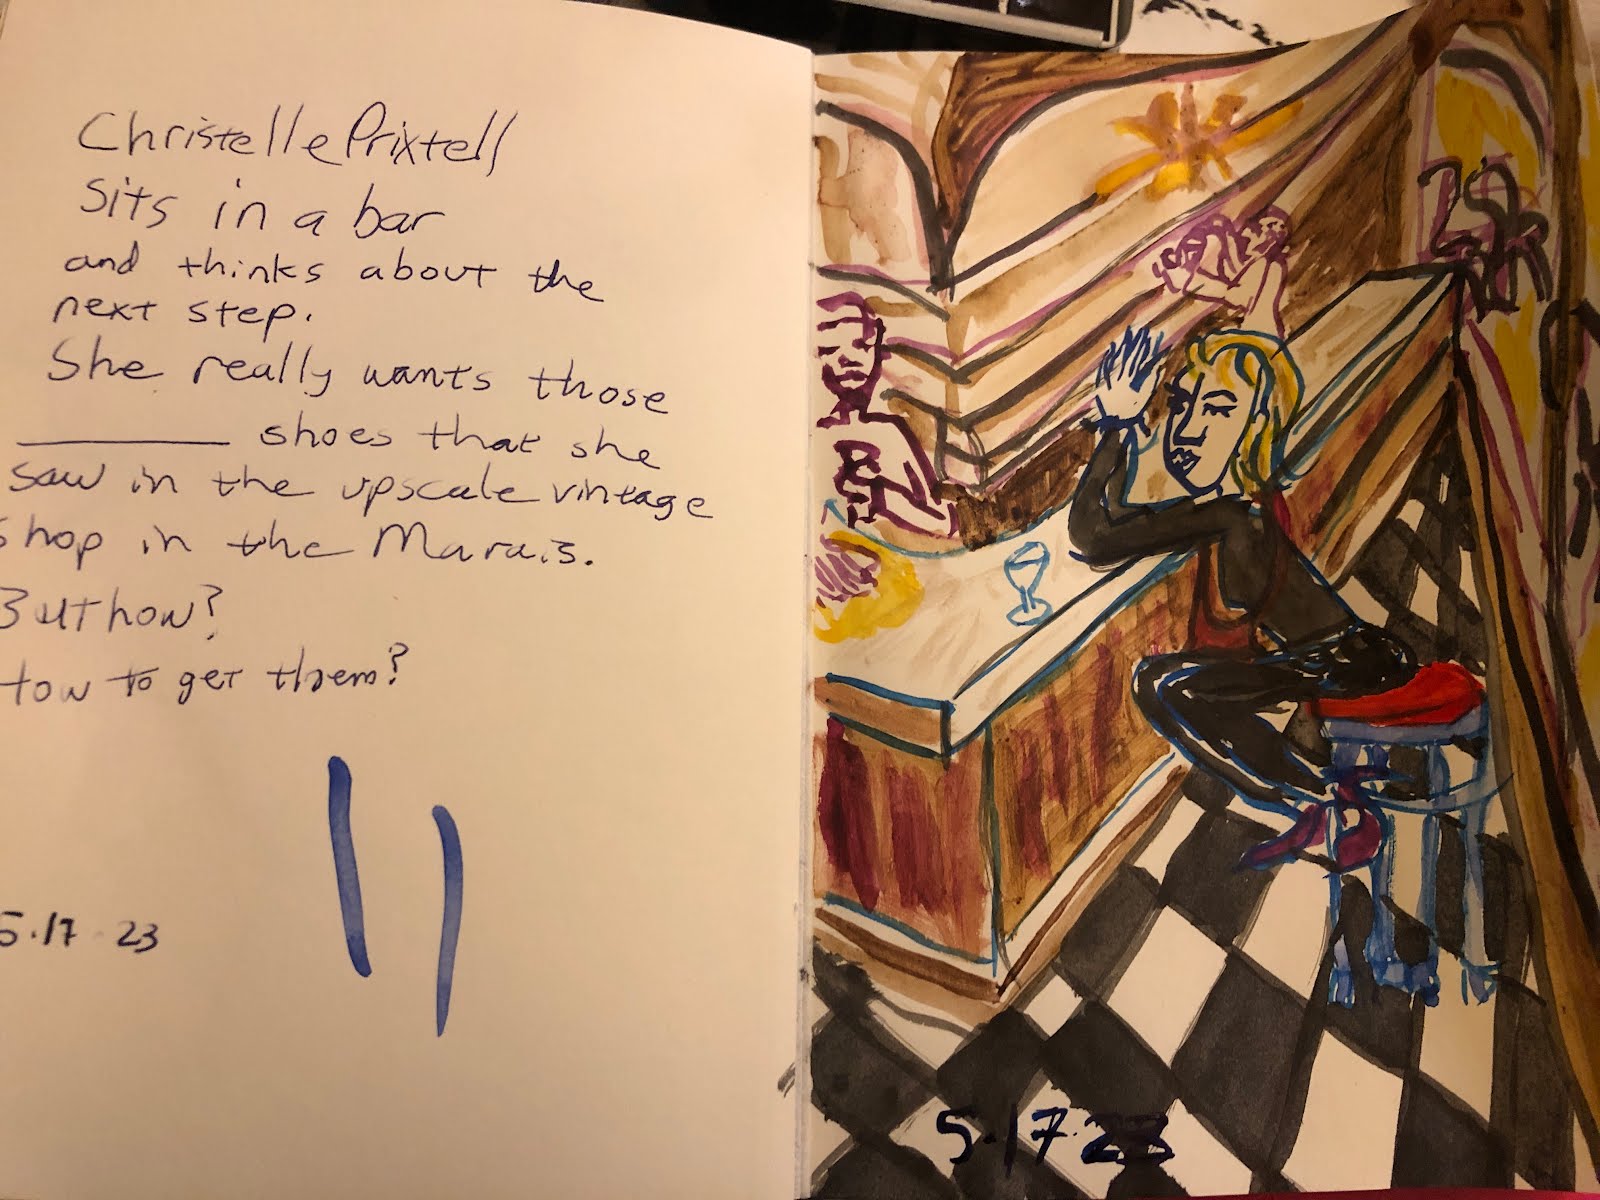 Christelle Prixtell
Sits in a bar
and thinks about the
next step.
She really wants those
__________ shoes that she
saw in the upscale vintage
shop in the Marais.
But how?
How to get them?
5.17.23
5.17.23